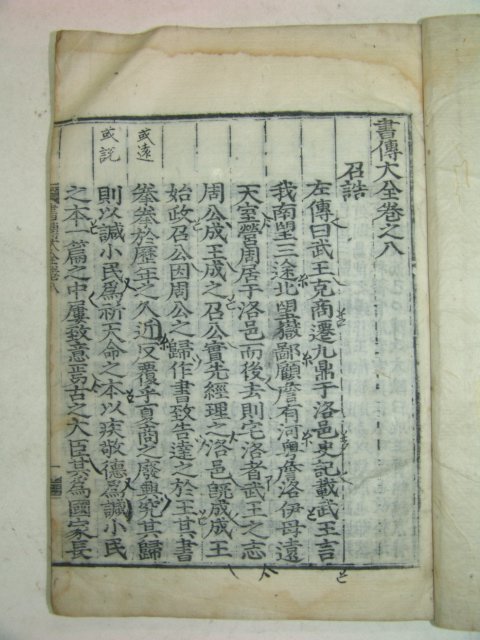 書傳大全卷之八
召誥
左傳曰武王克商遷九鼎于洛邑史記載武王言
我南望三途北望嶽鄙顧詹有河粤詹洛伊毋遠
天室營周居于洛邑而後去則宅洛者武王之志
周公成王成之召公實先經理之洛邑旣成成王
始政召公因周公之歸作書致告達之於王其書
拳拳於歷年之久近反覆乎夏商之廢興究其歸
則以諴小民爲祈天命之本以疾敬德爲諴小民
之本一篇之中屢致意焉古之大臣其爲國家長
或遠
或説
書傳大全卷八